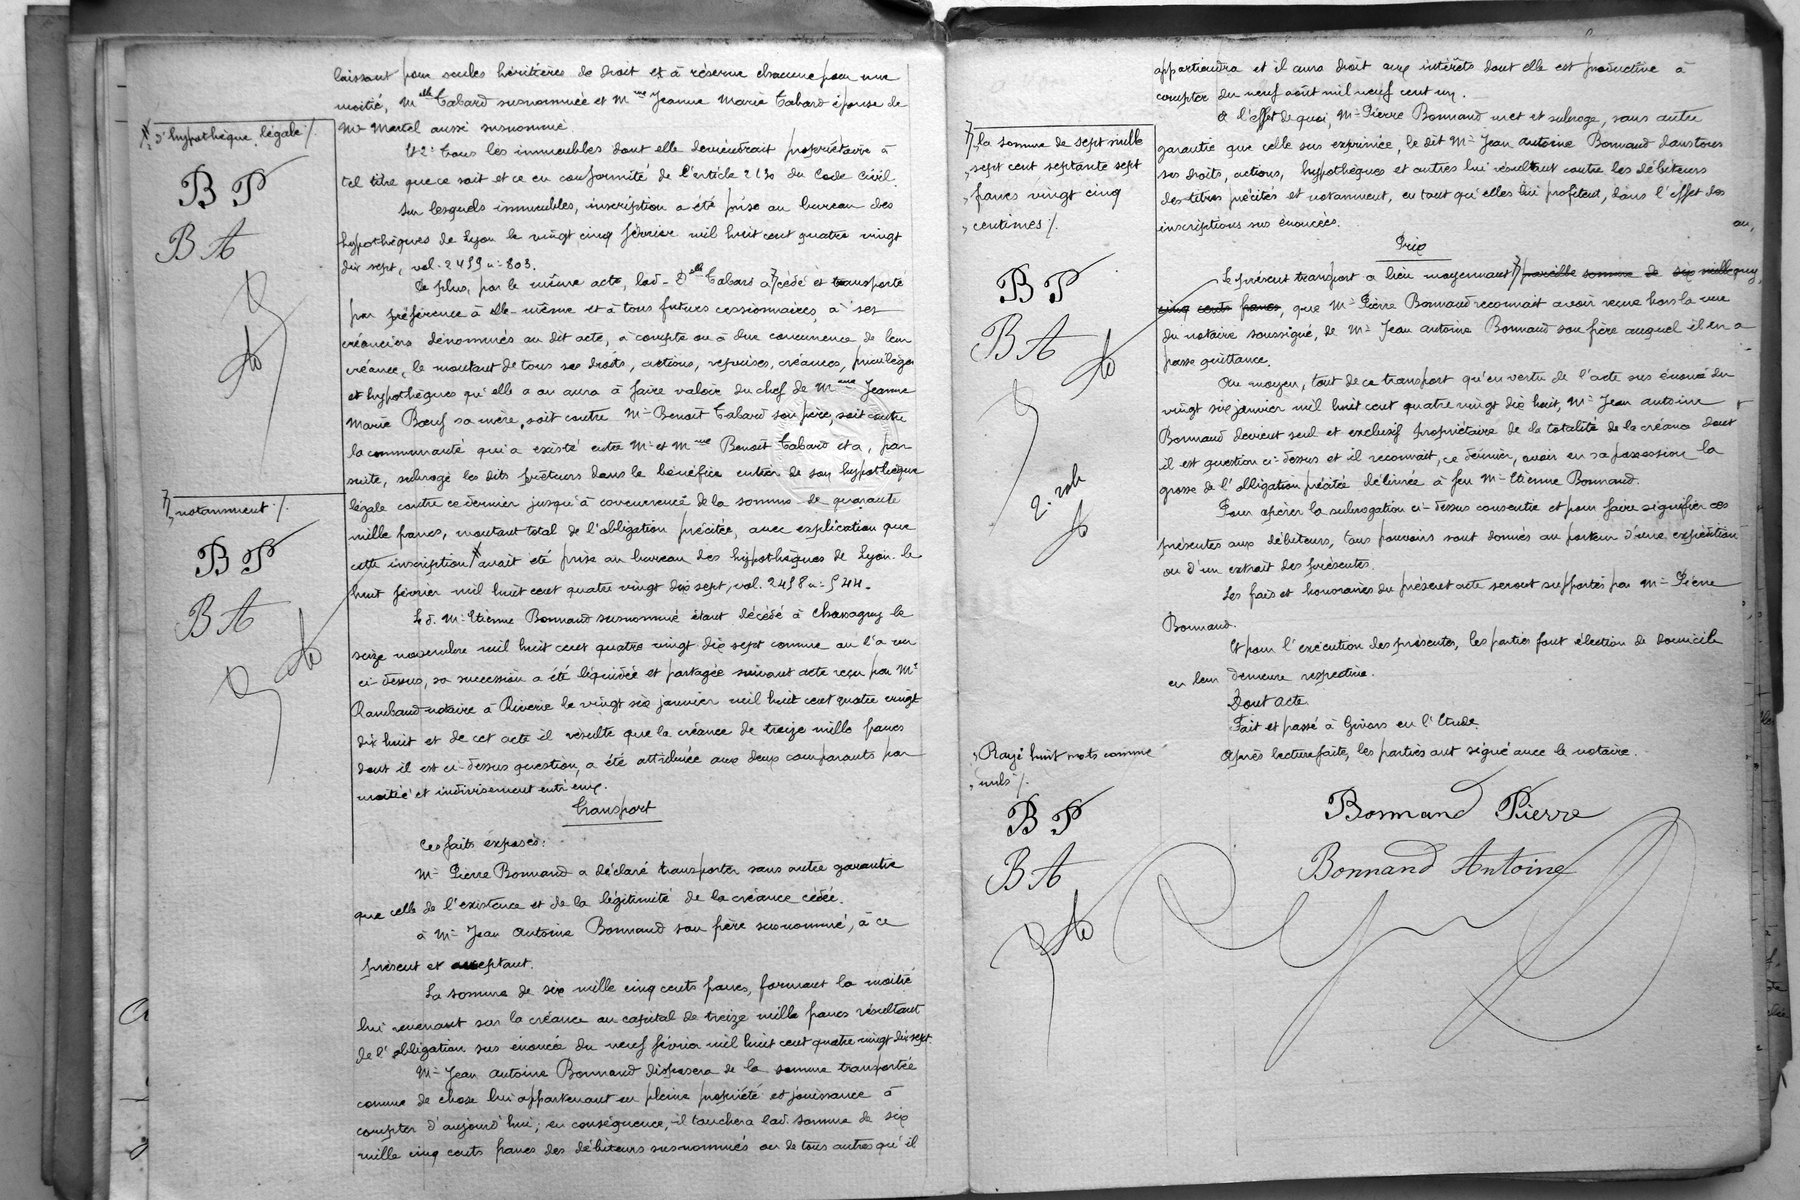 laissant pour seules héritières de droit et à réserve chacune pour une
moitié, Melle Tabard susnommée et Mme Jeanne Marie Tabard épouse de
Mr Martel aussi susnommé.
Et 2° tous les immeubles dont elle deviendrait propriétaire à
tel titre que ce soit et ce en conformité de l'article 2130 du Code Civil.
Sur lesquels immeubles, inscription a été prise au bureau des
hypothèques de Lyon le vingt cinq février mil huit cent quatre vingt
dix sept, vol. 2459 n° 803.
De plus, par le même acte, lad. Delle Tabard a cédé et transporté
par préférence à elle-même et à tous futurs cessionnaires, à ses
créanciers dénommés au dit acte, à compte ou à due concurrence de leur
créance, le montant de tous ses droits, actions, reprises, créances, privilèges
et hypothèques qu'elle a ou aura à faire valoir du chef de Mme Jeanne
Marie Bœuf sa mère, soit contre Mr Benoit Tabard son père, soit contre
la communauté qui a existé entre Mr et Mme Benoit Tabard et a, par
suite, subrogé les dits prêteurs dans le bénéfice entier de son hypothèque
légale contre ce dernier jusqu'à concurrence de la somme de quarante
mille francs, montant total de l'obligation précitée, avec explication que
cette inscription avait été prise au bureau des hypothèques de Lyon le
huit février mil huit cent quatre vingt dix sept, vol. 2458 n° 544.
Le d. Mr Etienne Bonnand susnommé étant décédé à Chassagny le
seize novembre mil huit cent quatre vingt dix sept comme on l'a vu
ci-dessus, sa succession a été liquidée et partagée suivant acte reçu par Me
Rambaud notaire à Riverie le vingt six janvier mil huit cent quatre vingt
dix huit et de cet acte il résulte que la créance de treize mille francs
dont il est ci-dessus question, a été attribuée aux deux comparants par
moitié et indivisément entr'eux.
Transport
Ces faits exposés:
Mr Pierre Bonnand a déclaré transporter sans autre garantie
que celle de l'existence et de la légitimité de la créance cédée.
à Mr Jean Antoine Bonnand son frère susnommé, à ce
présent et acceptant.
La somme de six mille cinq cents francs, formant la moitié
lui revenant sur la créance au capital de treize mille francs résultant
de l'obligation sus énoncée du neuf février mil huit cent quatre vingt dix sept.
Mr Jean Antoine Bonnand disposera de la somme transportée
comme de chose lui appartenant en pleine propriété et jouissance à
compter d'aujourd'hui; en conséquence, il touchera lad. somme de six
mille cinq cents francs des débiteurs susnommés ou de tous autres qu'il
d'hypothèque légale /.
B P
B A
notamment /.
B P
B A
appartiendra et il aura droit aux intérêts dont elle est productive à
compter du neuf août mil neuf cent un.
A l'effet de quoi, Mr Pierre Bonnand met et subroge, sans autre
garantie que celle sus exprimée, le dit Mr Jean Antoine Bonnand dans tous
ses droits, actions, hypothèques et autres lui résultant contre les débiteurs
des titres précités et notamment, en tant qu'elles lui profitent, dans l'effet des
inscriptions sus énoncées.
Prix
Le présent transport a lieu moyennant pareille somme de six mille
cinq cents francs, que Mr Pierre Bonnand reconnait avoir reçue hors la vue
du notaire soussigné, de Mr Jean Antoine Bonnand son frère auquel il en a
passe quittance.
Au moyen, tout de ce transport qu'en vertu de l'acte sus énoncé du
vingt six janvier mil huit cent quatre vingt dix huit, Mr Jean Antoine
Bonnand devient seul et exclusif propriétaire de la totalité de la créance dont
il est question ci-dessus et il reconnait, ce dernier, avoir en sa possession la
grosse de l'obligation précitée délivrée à feu Mr Etienne Bonnand.
Pour opérer la subrogation ci-dessus consentie et pour faire signifier ces
présentes aux débiteurs, tous pouvoirs sont donnés au porteur d'une expédition
ou d'un extrait des présentes.
Les frais et honoraires du présent acte seront supportés par Mr Pierre
Bonnand.
Et pour l'exécution des présentes, les parties font élection de domicile
en leur demeure respective.
Dont acte.
Fait et passé à Givors en l'Etude.
Après lecture faite, les parties ont signé avec le notaire.
Bonnand Pierre
Bonnand Antoine
la somme de sept mille
sept cent septante sept
francs vingt cinq
centimes /.
B P
B A
Rayé huit mots comme
nuls /.
B P
B A